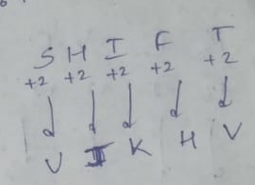 S H I F T
+2 +2 +2 +2 +2
U J K H V